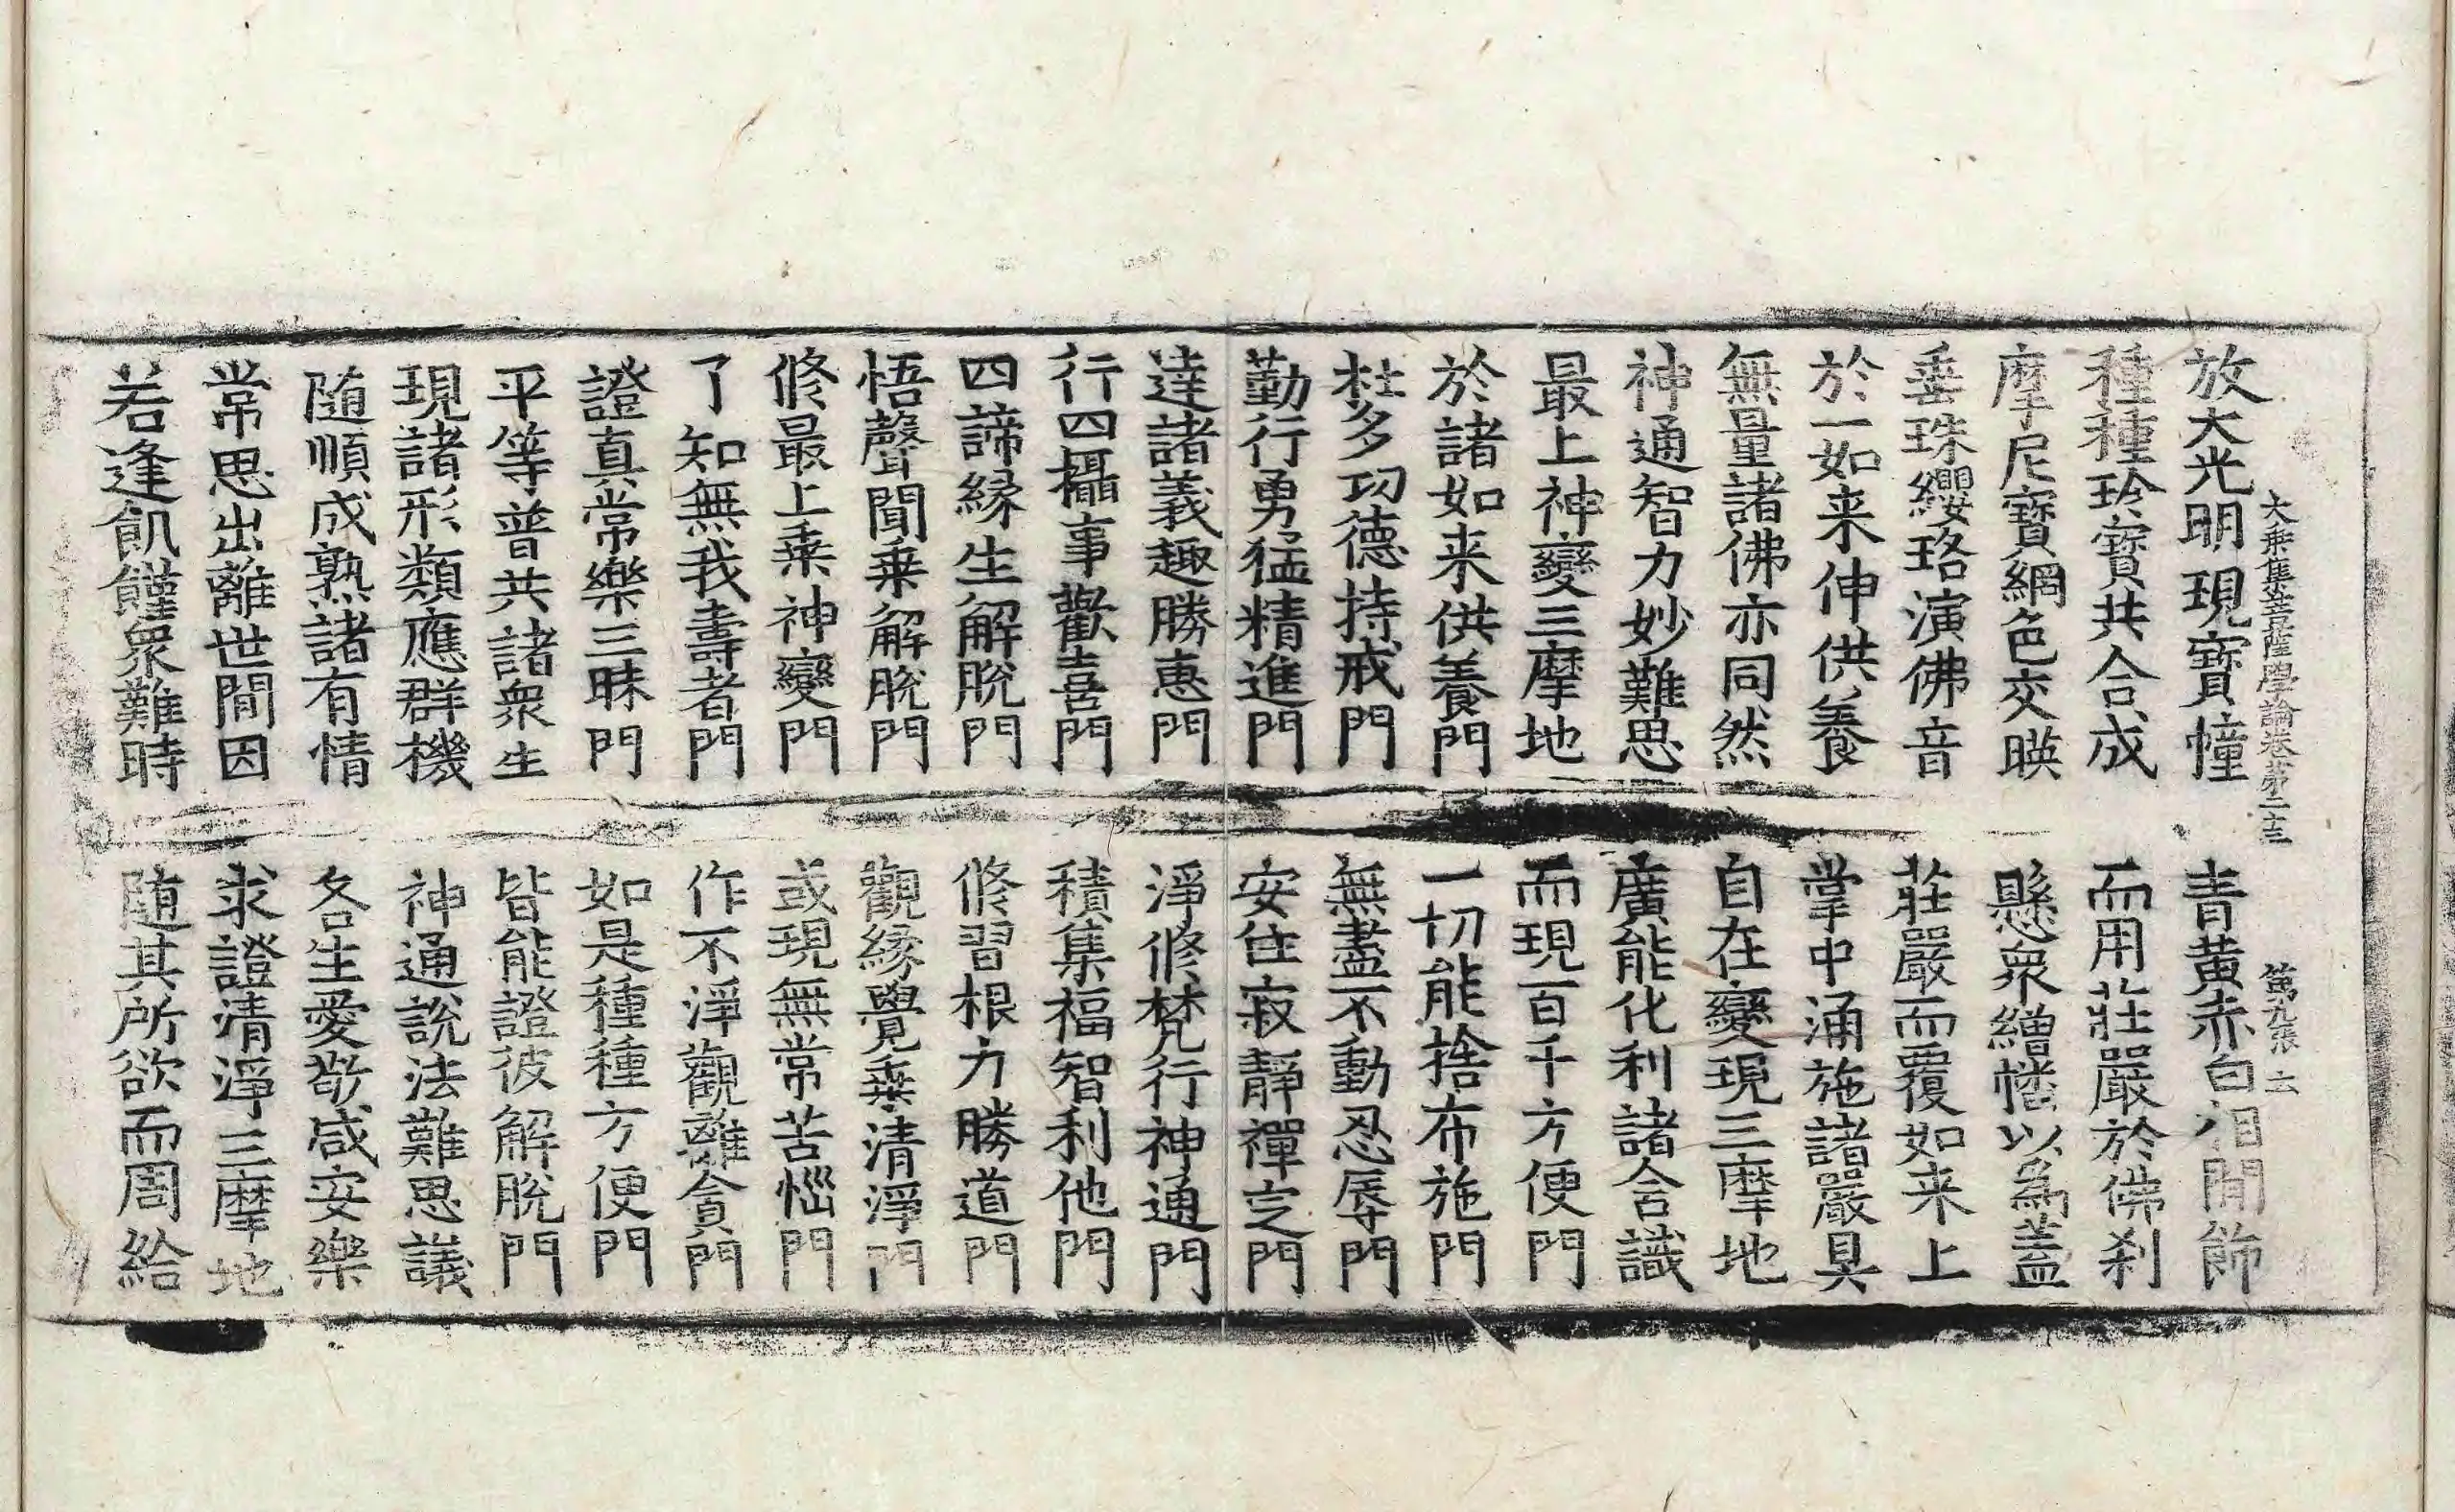 大乗集菩薩學論卷第二十三 第九張 云
放大光明現寶幢 青黃赤白相間飾
種種珍寶共合成 而用莊嚴於佛刹
摩尼寶網色交暎 懸衆繒幡以為蓋
垂珠纓珞演佛音 莊嚴而覆如来上
於一如来伸供養 掌中涌施諸嚴具
無量諸佛亦同然 自在變現三摩地
神通智力妙難思 廣能化利諸含識
最上神變三摩地 而現百千方便門
於諸如来供養門 一切能捨布施門
杜多功德持戒門 無盡不動忍辱門
勤行勇猛精進門 安住寂靜禪定門
達諸義趣勝惠門 淨修梵行神通門
行四攝事歡喜門 積集福智利他門
四諦緣生解脫門 修習根力勝道門
悟聲聞乗解脫門 觀緣覺乗清淨門
修最上乗神變門 或現無常苦惱門
了知無我壽者門 作不淨觀離貪門
證真常樂三昧門 如是種種方便門
平等普共諸衆生 皆能證彼解脫門
現諸形類應群機 神通說法難思議
随順成熟諸有情 各生愛敬咸安樂
常思出離世間因 求證清淨三摩地
若逢飢饉衆難時 随其所欲而周給